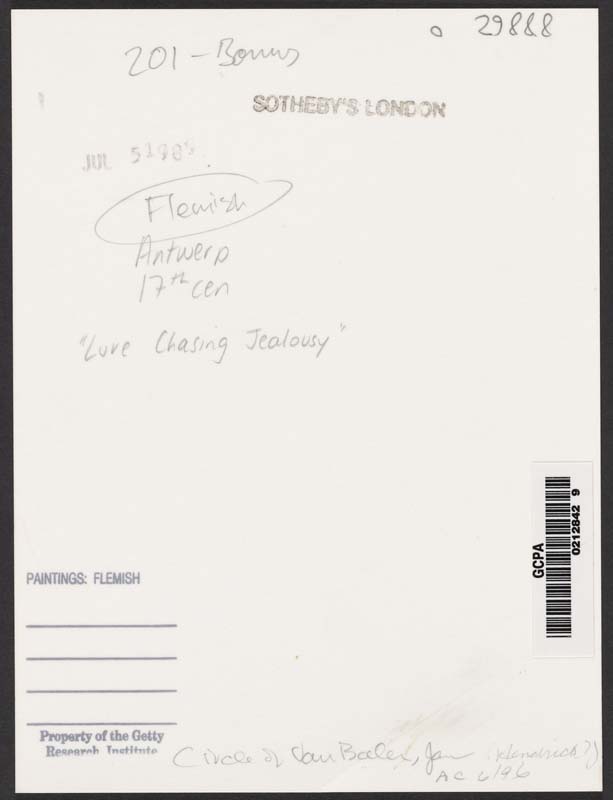 29888
201 - Bonus
SOTHEBY'S LONDON
JUL 5 198
Flemish
Antwerp
17th cen
"Love Chasing Jealousy"
GCPA
0212842 9
PAINTINGS: FLEMISH
Property of the Getty
Research Institute
Circle of Van Balen, Jan (Hendrick?)
AC 6/96